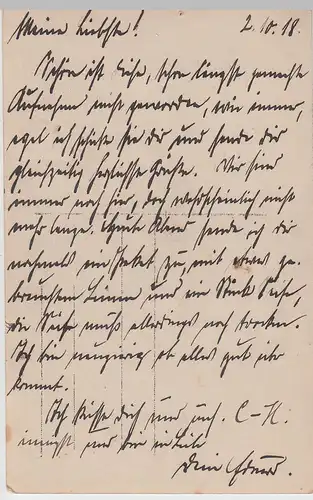 Meine Liebste! 2.10.18.
Schön ist diese, schon längst gemachte
Aufnahme nicht geworden, wie immer,
egal ich schicke sie dir und sende dir
gleichzeitig herzlichste Grüsse. Wir sind
immer noch hier, doch wahrscheinlich nicht
mehr lange. Heute Abend sende ich dir
nochmals ein Paket zu, mit etwas ge-
brauchtem Linnen und ein Stück Seife,
die Seife muß allerdings noch trocknen.
Ich bin neugierig ob alles gut über-
kommt.
Ich küsse dich und uns. C-H.
innigst und bin in Liebe
Dein Eduard.